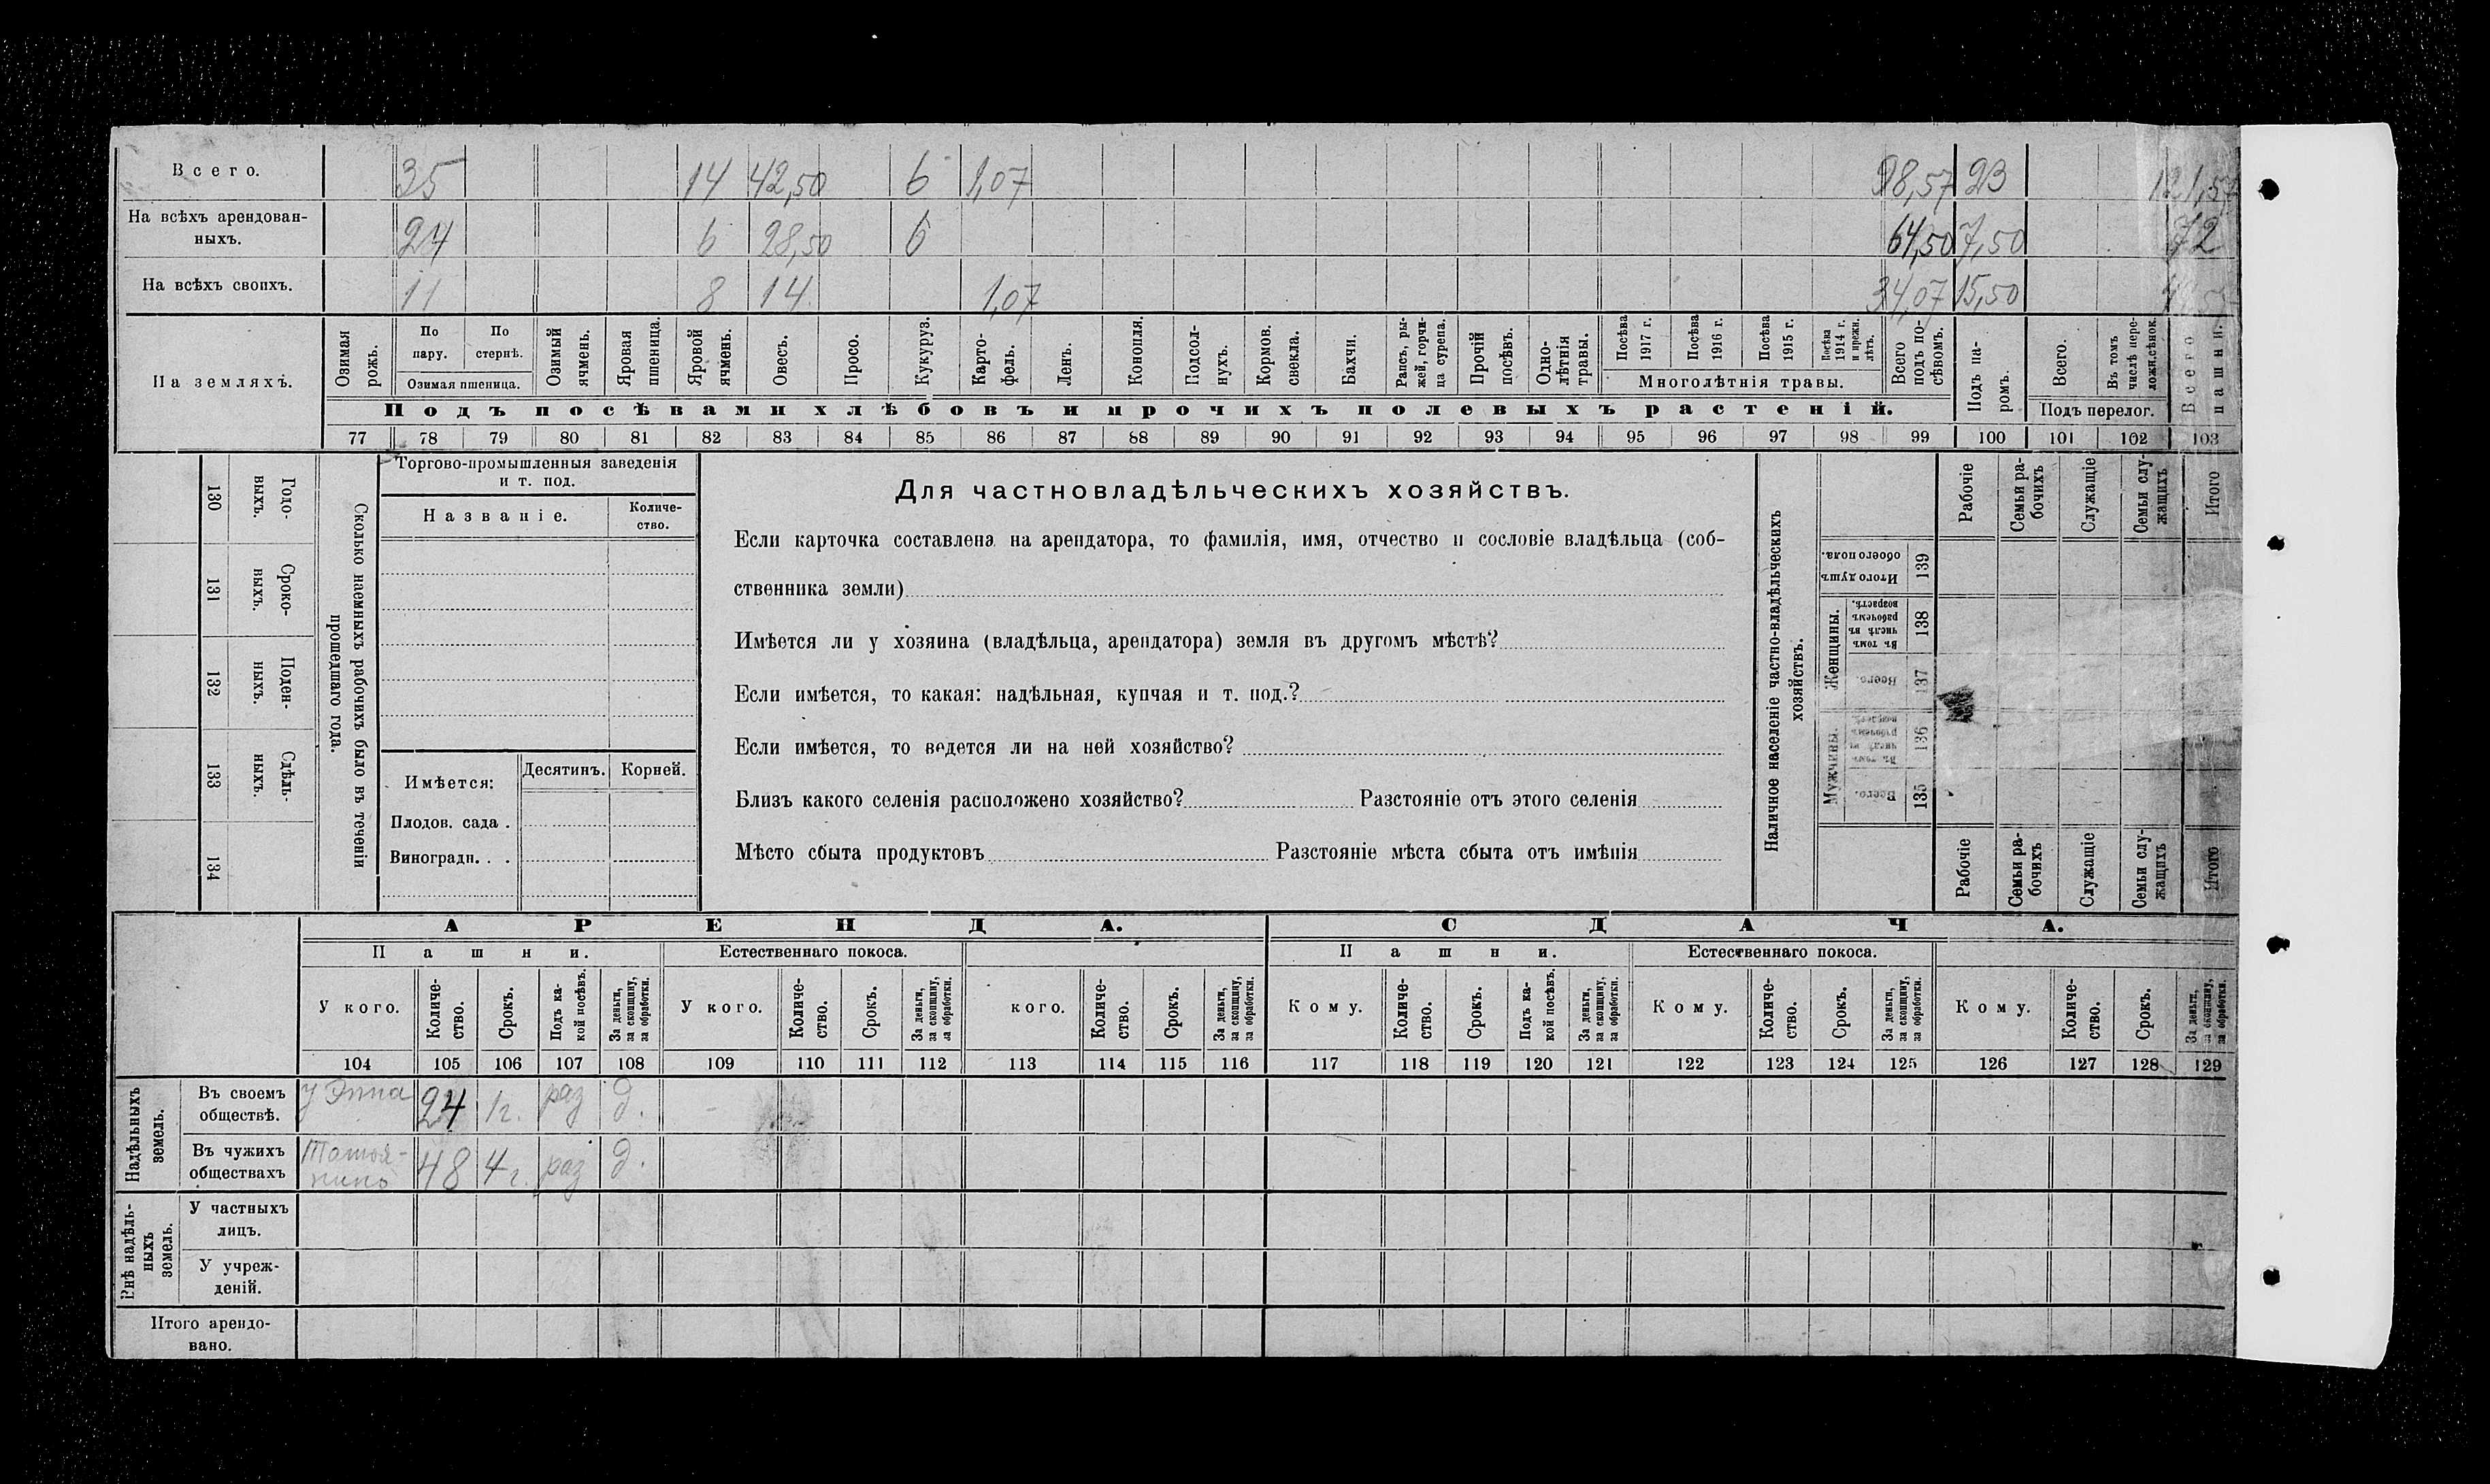 Всего. 35 14 42,50 6 1,07 98,57 23 121,57
На всѣхъ арендован-
ныхъ. 24 6 28,50 6 64,50 7,50 72
На всѣхъ своихъ. 11 8 14 1,07 34,07 15,50
На земляхъ.
Озимая рожь.
По пару.
По стернѣ.
Озимая пшеница.
Озимый ячмень.
Яровая пшеница.
Яровой ячмень.
Овесъ.
Просо.
Кукуруз.
Карто-
фель.
Ленъ.
Конопля.
Подсол-
нухъ.
Кормов. свекла.
Бахчи.
Рапсъ, ры-
жей, горчи-
ца сурепа.
Прочій посѣвъ.
Одно-
лѣтнія травы.
Посѣва 1917 г.
Посѣва 1916 г.
Посѣва 1915 г.
Посѣва 1914 г. и прежн. лѣтъ.
Многолѣтнія травы.
Всего подъ по-
сѣвомъ.
Подъ па-
ромъ.
Всего.
Въ томъ числѣ пере-
ложн.сѣнок.
Подъ перелог.
Всего пашни.
Подъ посѣвами хлѣбовъ и прочихъ полевыхъ растеній.
77 78 79 80 81 82 83 84 85 86 87 88 89 90 91 92 93 94 95 96 97 98 99 100 101 102 103
130 Годо-
выхъ.
131 Сроко-
выхъ.
132 Поден-
ныхъ.
133 Сдѣль-
ныхъ.
134
Сколько наемныхъ рабочихъ было въ теченіи
прошедшаго года.
Торгово-промышленныя заведенія
и т. под.
Названіе.
Количе-
ство.
Имѣется:
Десятинъ.
Корней.
Плодов. сада .
Виноградн. . .
Для частновладѣльческихъ хозяйствъ.
Если карточка составлена на арендатора, то фамилія, имя, отчество и сословіе владѣльца (соб-
ственника земли)
Имѣется ли у хозяина (владѣльца, арендатора) земля въ другомъ мѣстѣ?
Если имѣется, то какая: надѣльная, купчая и т. под.?
Если имѣется, то ведется ли на ней хозяйство?
Близъ какого селенія расположено хозяйство? Разстояніе отъ этого селенія
Мѣсто сбыта продуктовъ Разстояніе мѣста сбыта отъ имѣнія
Наличное населеніе частно-владѣльческихъ
хозяйствъ.
Рабочіе
Семьи ра-
бочихъ
Служащіе
Семьи слу-
жащихъ
Итого
Итого душъ обоего пола. 139
Женщины.
Въ томъ числѣ въ рабочемъ возрастѣ. 138
Всего. 137
Мужчины.
Въ томъ числѣ въ рабочемъ возрастѣ. 136
Всего. 135
Рабочіе
Семьи ра-
бочихъ
Служащіе
Семьи слу-
жащихъ
Итого
АРЕНДА. СДАЧА.
Пашни. Естественнаго покоса. Пашни. Естественнаго покоса.
У кого.
Количе-
ство.
Срокъ.
Подъ ка-
кой посѣвъ.
За деньги,
за скопщину,
за обработки.
У кого.
Количе-
ство.
Срокъ.
За деньги,
за скопщину,
за обработки.
кого.
Количе-
ство.
Срокъ.
За деньги,
за скопщину,
за обработки.
Кому.
Количе-
ство.
Срокъ.
Подъ ка-
кой посѣвъ.
За деньги,
за скопщину,
за обработки.
Кому.
Количе-
ство.
Срокъ.
За деньги,
за скопщину,
за обработки.
Кому.
Количе-
ство.
Срокъ.
За деньги,
за скопщину,
за обработки.
104 105 106 107 108 109 110 111 112 113 114 115 116 117 118 119 120 121 122 123 124 125 126 127 128 129
Надѣльныхъ
земель.
Въ своемъ
обществѣ. у Эппа 24 1г. раз д.
Въ чужихъ
обществахъ 48 4г. раз д.
Внѣ надѣль-
ныхъ
земель.
У частныхъ
лицъ.
У учреж-
деній.
Итого арендо-
вано.